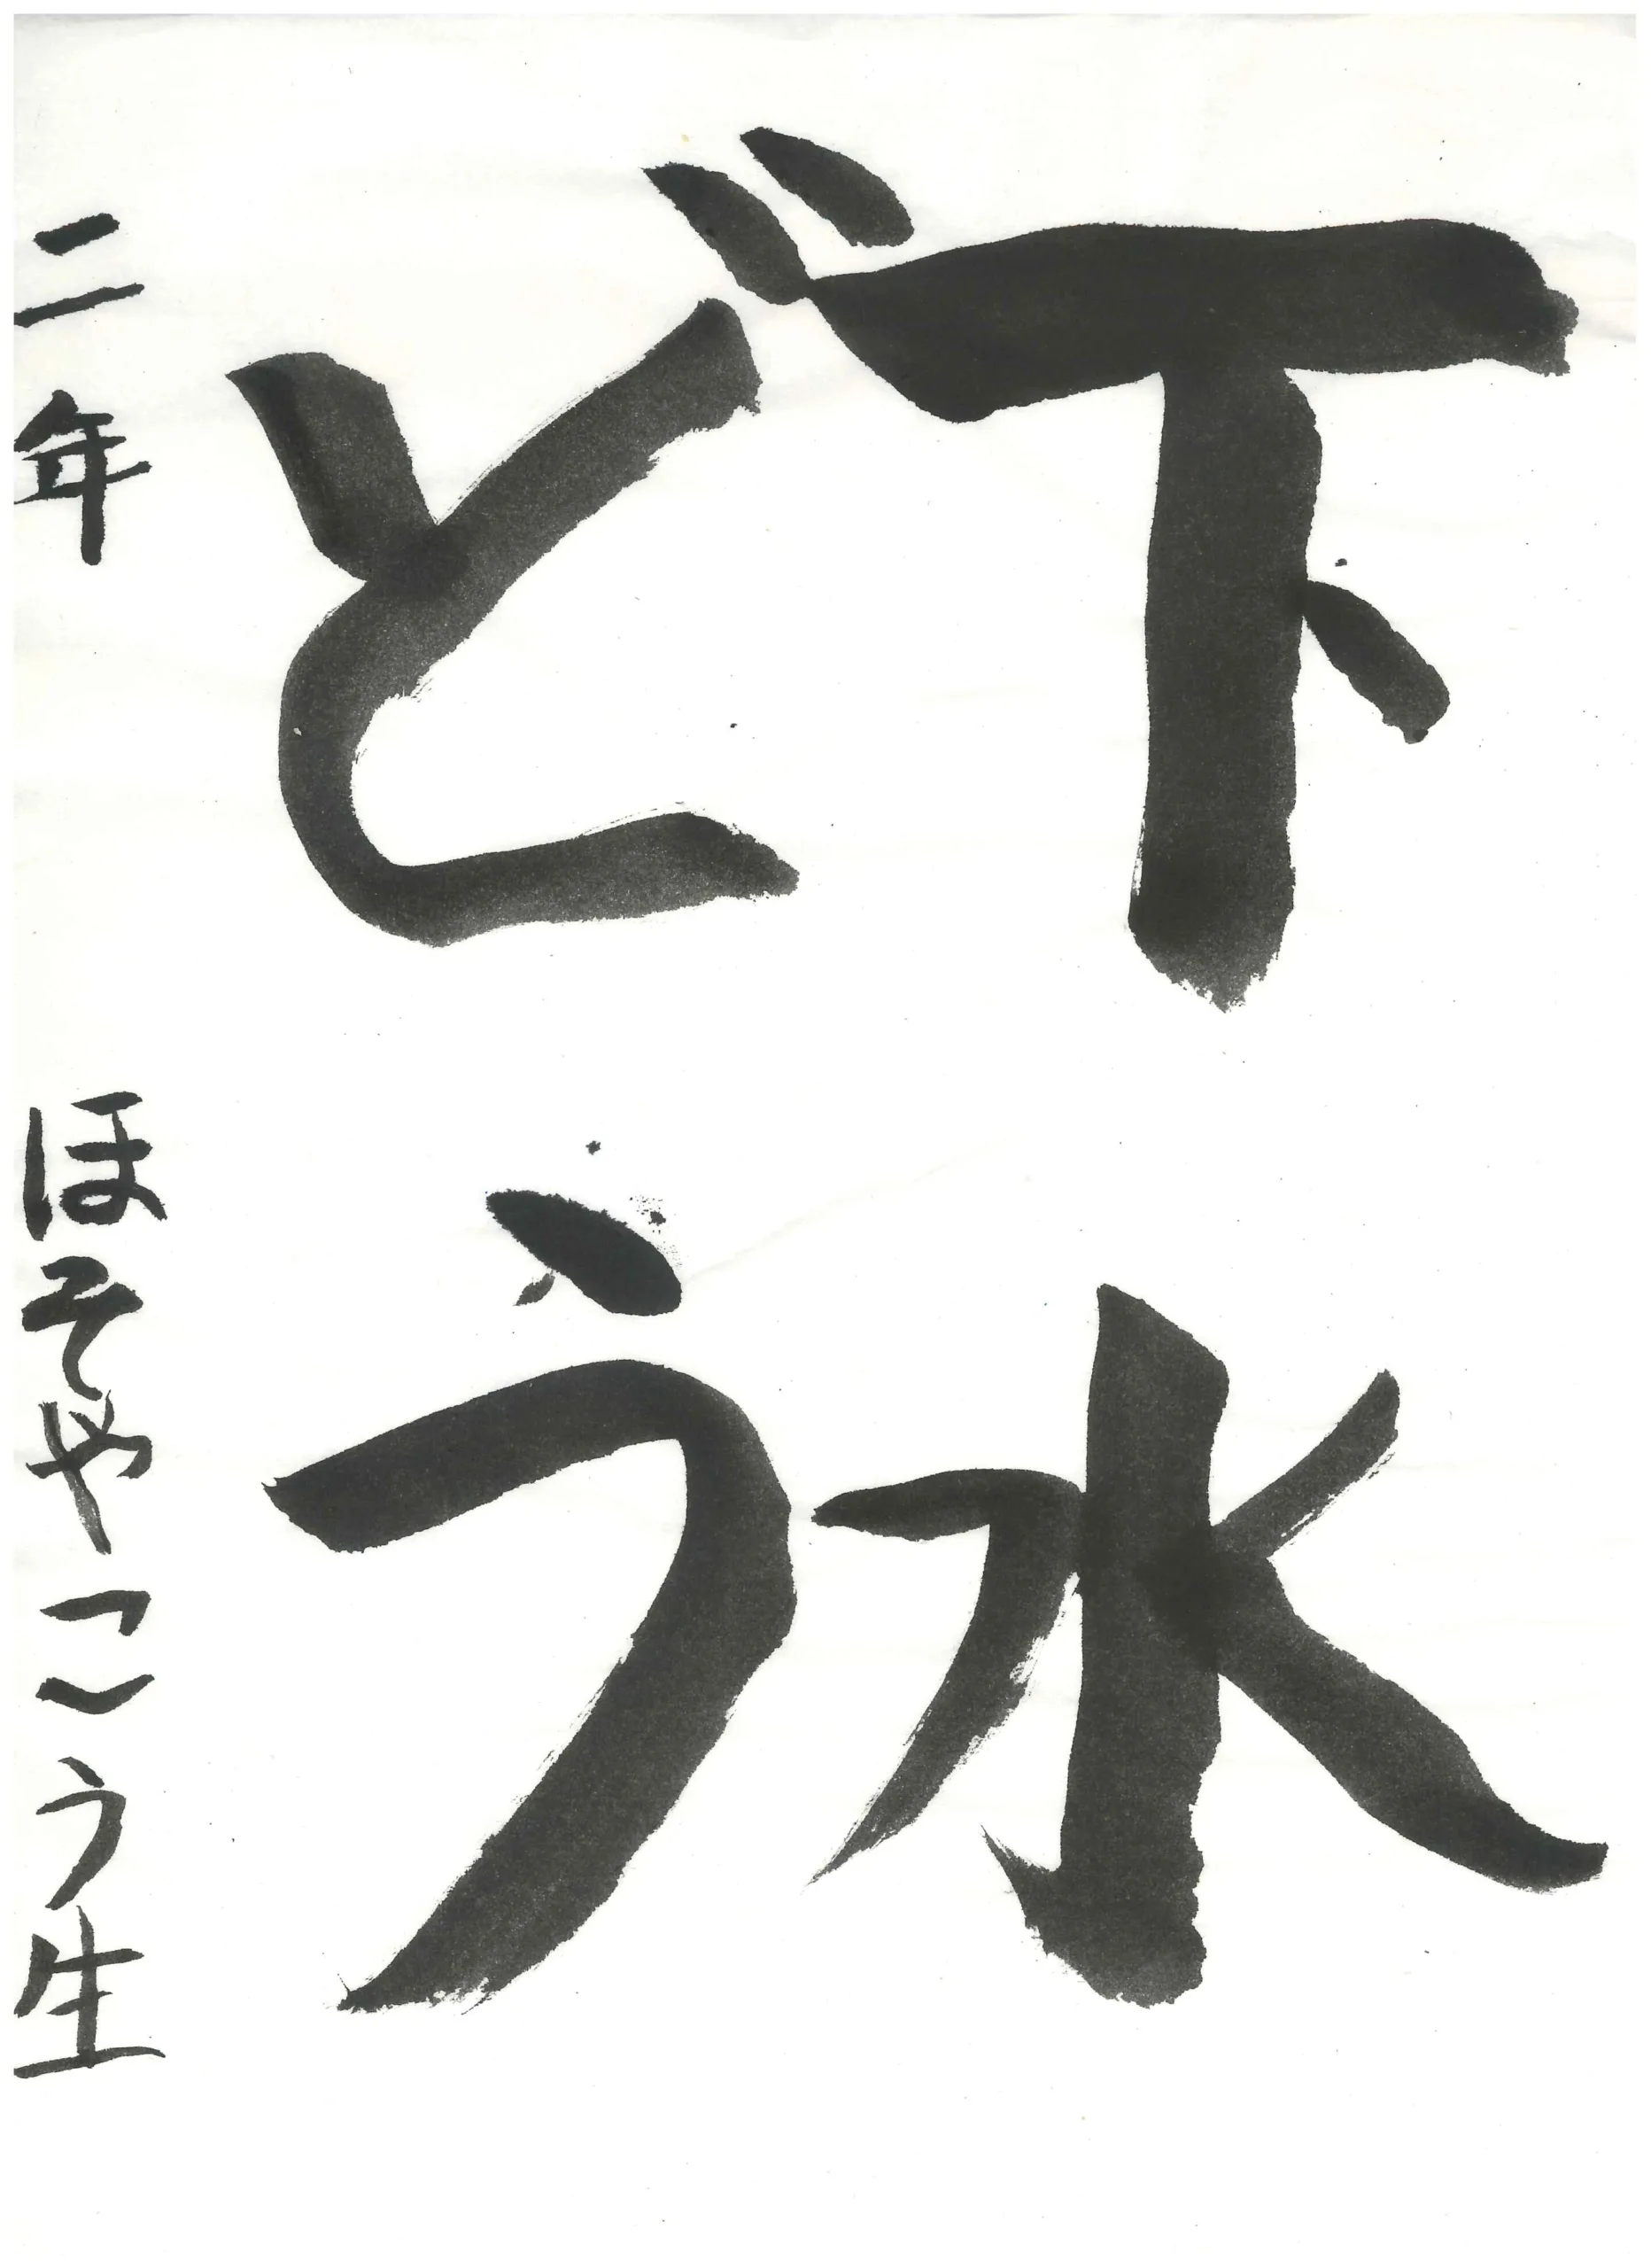 下水
どう
二年 ほそやこう生